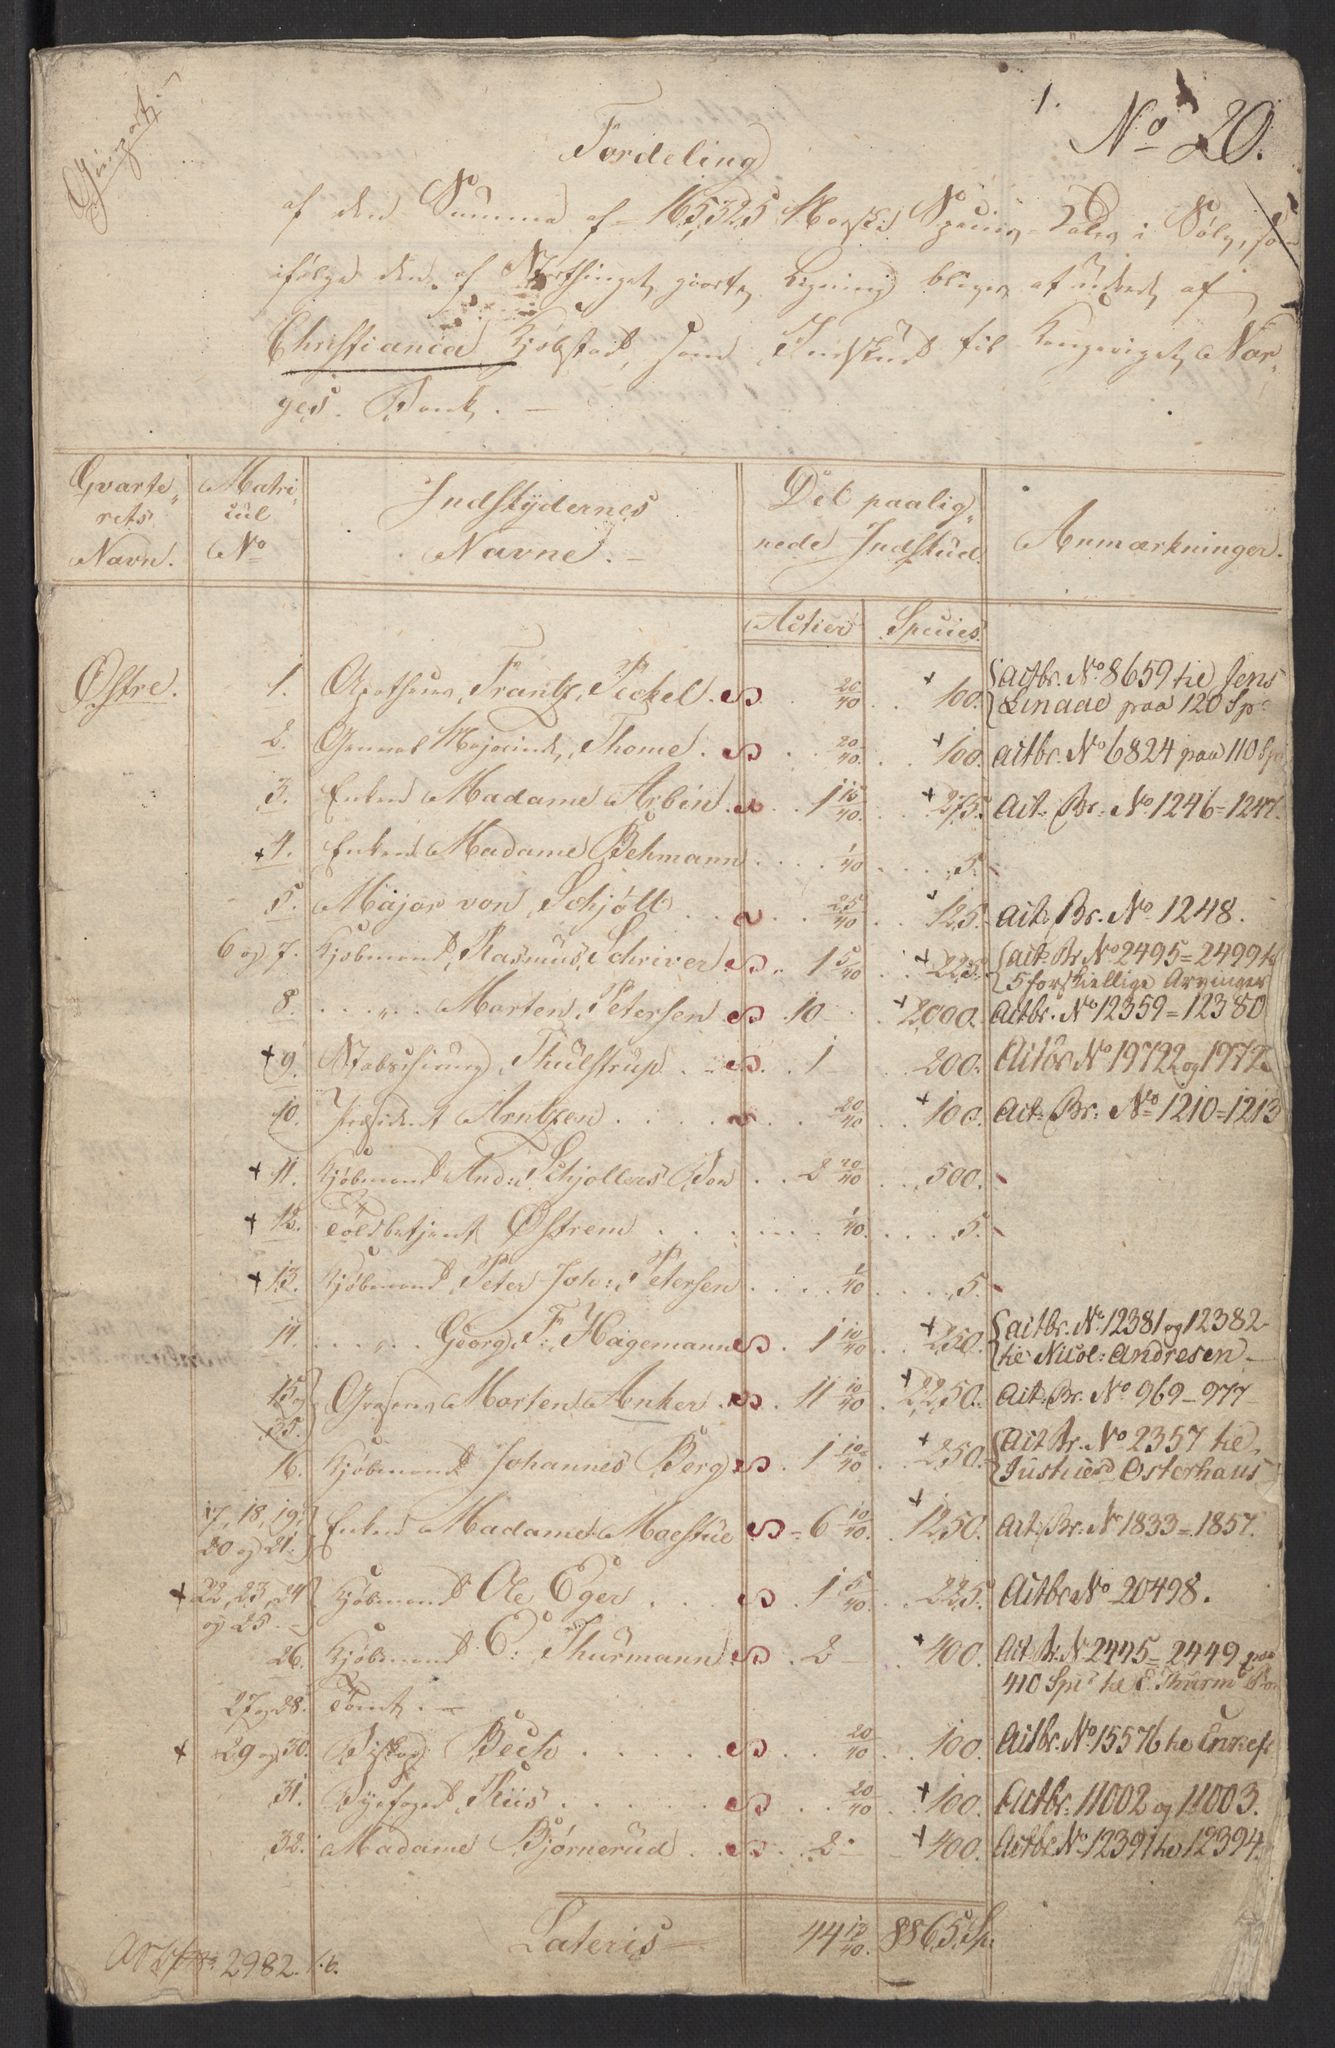 1.
No 20.
Fordeling
af den Summa af 165,325 Norske Species Daler i Sølv, som
ifølge den af Storthinget giorte Ligning bliver at udrede af
Christiania Kjøbstad, som Indskud til Kongeriget Nor-
ges Bank. —
Qvarte- Matri- Indskydernes Det paalig-
rets cul Navne. — nede Indskud. Anmærkninger.
Navn. No
Actier Species
Østre. 1. Apotheker Frantz Peckel. 20/40 100. actbr. No 8659 til Jens
Linaae paa 120 Sp
2. General Majorinde Thome. 20/40. 100. actbr. No 6824 paa 110 Sp
3. Enken Madame Arbin 1 15/40. 275. Act: Br: No 1246=1247.
4. Enken Madame Behmann 1/40 5.
5. Major von Schjøtt 25/40 125. Act. Br. No 1248.
6 og 7. Kjøbmand Rasmus Schriver. 1 5/40 225. act. Br No 2495=2499 til
5 forskiellige Arvinger
8. „ Morten Petersen 10 2000. Actbr. No 12359=12380
9. Stabschirurg Thulstrup. 1 200. Actbr No 19722 og 1972
10. Præsident Arntzen 20/40 100. Act: Br: No 1210=1213
11. Kjøbmand And: Schjøllers Boe 2 20/40 500.
12. Toldbetjent Østrem 1/40. 5.
13. Kjøbmand Peter Joh: Petersen 1/40 5.
14. „ Georg F: Hagemann 1 10/40 250. actbr. No 12381 og 12382
til Nicol: Andresen
15 og Grosserer Morten Anker 11 10/40 2250. Act. Br. No 969-977
35.
16. Kjøbmand Johannes Berg 1 10/40 250. Act Br. No 2357 til
Justicrd Osterhaus
17, 18, 19, Enken Madame Maestue 6 10/40. 1250. Act. Br. No 1833=1857.
20 og 21.
22, 23, 24 Kjøbmand Ole Eger 1 5/40. 225. Actbr No 20498.
og 25.
26. Kjøbmand E: Thurmann 2 400. Act Br. No 2445=2449 paa
410 Spd til E Thurm Bo
27 og 28. Tomt. —
29 og 30. Biskop Bech 20/40 100. Actbr. No 15576 til Enkef
31. Byefoged Riis 20/40 100. Actbr. 11002 og 11003.
32. Madame Bjørnerud 2 400. Actbr No 12391 til 12394.
Lateris 44 13/40. 8865. Sp.
2982. 1.6.